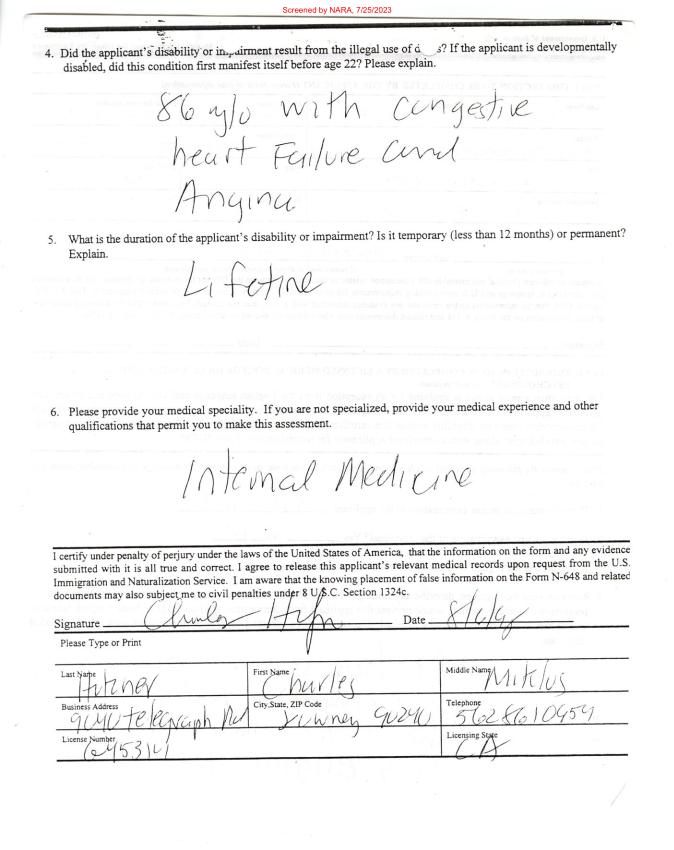 Screened by NARA, 7/25/2023
4. Did the applicant's disability or impairment result from the illegal use of d s? If the applicant is developmentally
disabled, did this condition first manifest itself before age 22? Please explain.
86 y/o with congestive
heart Failure and
Angina
5. What is the duration of the applicant's disability or impairment? Is it temporary (less than 12 months) or permanent?
Explain.
Lifetime
6. Please provide your medical speciality. If you are not specialized, provide your medical experience and other
qualifications that permit you to make this assessment.
Internal Medicine
I certify under penalty of perjury under the laws of the United States of America, that the information on the form and any evidence
submitted with it is all true and correct. I agree to release this applicant's relevant medical records upon request from the U.S.
Immigration and Naturalization Service. I am aware that the knowing placement of false information on the Form N-648 and related
documents may also subject me to civil penalties under 8 U.S.C. Section 1324c.
Signature Charles Date
Please Type or Print
Last Name First Name Charles Middle Name Miklos
Business Address 9040 telegraph Rd City, State, ZIP Code Downey 90240 Telephone 5628610954
License Number Licensing State CA